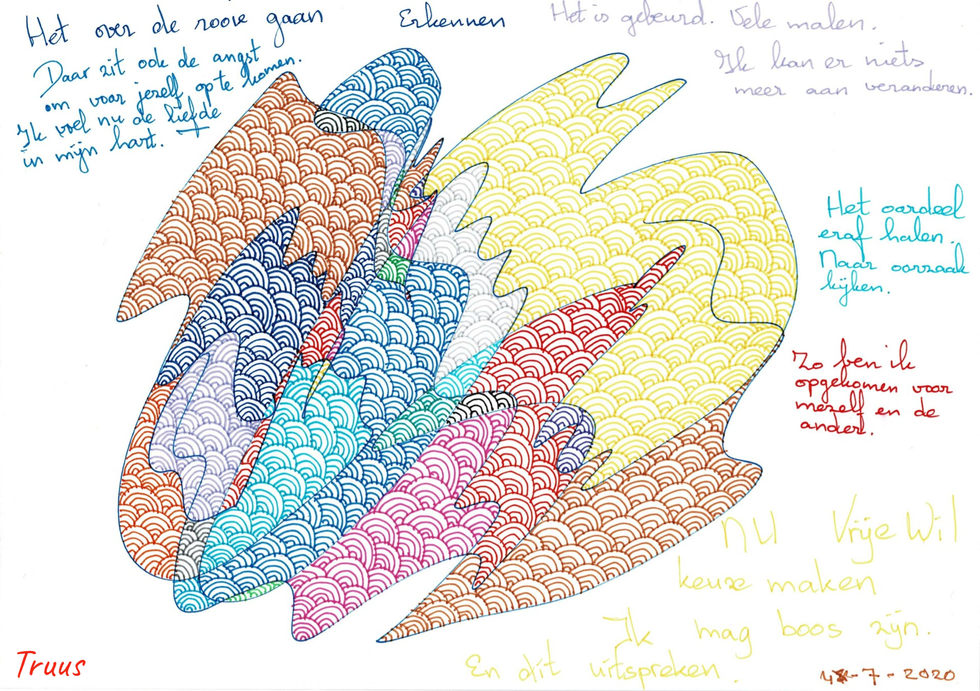 Het over de rooie gaan
Daar zit ook de angst
om voor jezelf op te komen.
Ik voel nu de liefde
in mijn hart.
Erkennen
Het is gebeurd. Vele malen.
Ik kan er niets
meer aan veranderen.
Het oordeel
eraf halen.
Naar oorzaak
kijken.
Zo ben ik
opgekomen voor
mezelf en de
ander.
NU Vrije Wil
keuze maken
Ik mag boos zijn.
En dit uitspreken.
Truus
-7-2020